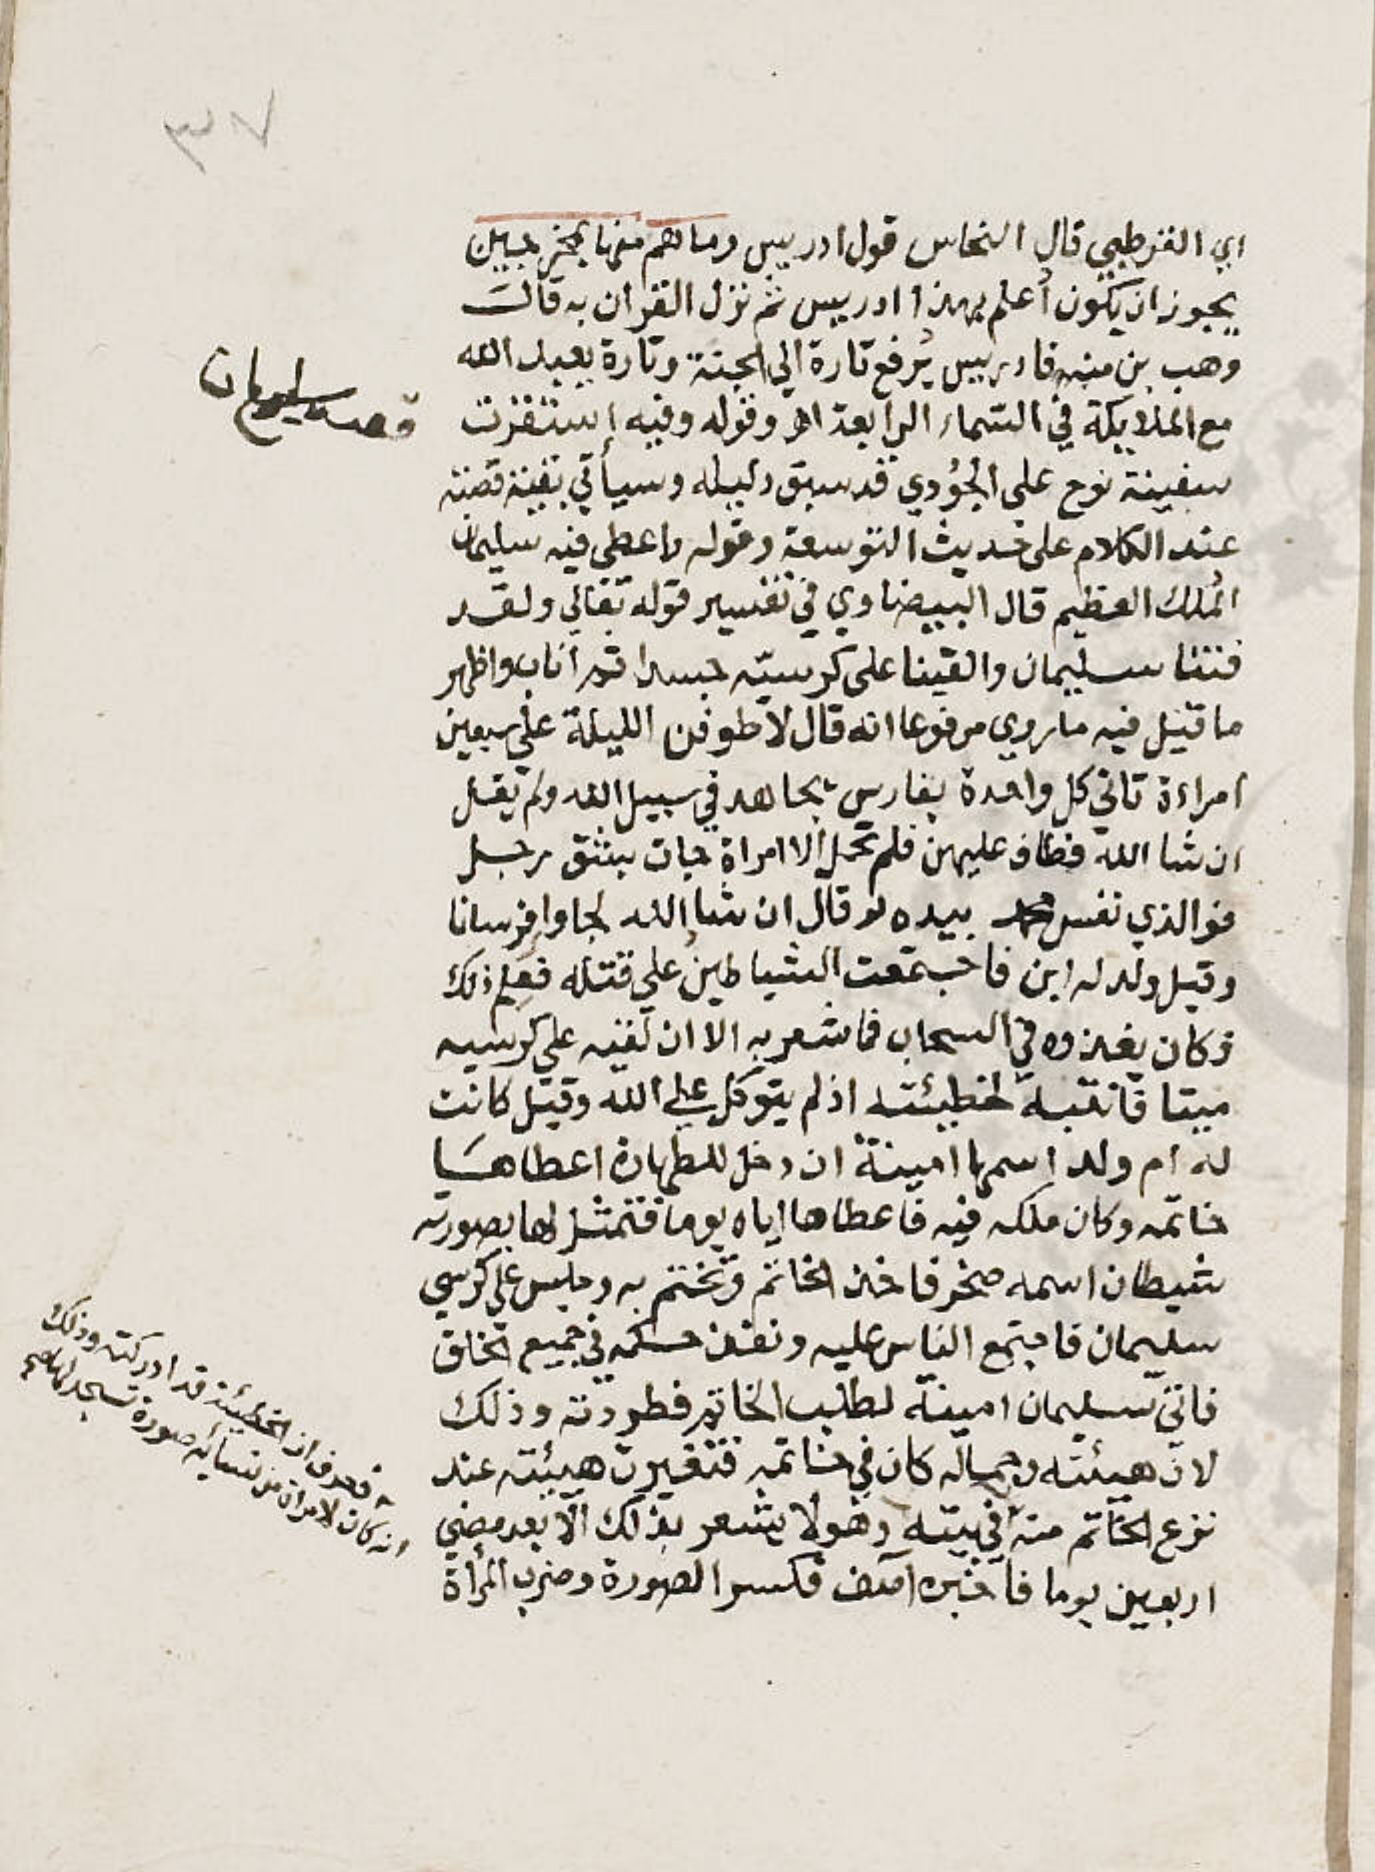 ٣٧
اي القرطبي قال النحاس قول ادريس وما هم منها بمخرجين
يجوز ان يكون أعلم بهذا ادريس ثم نزل القران به قالت
وهب بن منبه فادريس يُرفع تارة الي الجنة وتارة يعبد الله
مع الملايكة في السماء الرابعة اهـ وقوله وفيه إستقرت
سفينة نوح على الجُودي قد سبق دليله وسيأتي بقية قصته
عند الكلام على حديث التوسعة وقوله واعطى فيه سليمان
المُلك العظيم قال البيضاوي في تفسير قوله تعالي ولقد
فتنا سليمان والقينا على كرسيّه جسدا ثم أناب واظهر
ما قيل فيه ما روي مرفوعا انه قال لاطوفن الليلة علي سبعين
امراءة تاتي كل واحدة بفارس يجاهد في سبيل الله ولم يقل
ان شا الله فطاف عليهن فلم تحمل الا امراة جات بشق رجل
فوالذي نفس محمد بيده لو قال ان شا الله لجاوا فرسانا
وقيل ولد له ابن فاجتمعت الشياطين علي قتله فعلم ذلك
فكان يغذوه في السحاب فما شعر به الا ان لقيه علي كرسيه
ميتا فانتبه لخطيئته اذ لم يتوكل علي الله وقيل كانت
له ام ولد اسمها امينة ان دخل للطهارة اعطاها
خاتمه وكان ملكه فيه فاعطاها اياه يوما فتمثل لها بصورته
شيطان اسمه صخر فاخذ الخاتم وتختم به وجلس علي كرسي
سليمان فاجتمع الناس عليه ونفذ حكمه في جميع الخلق
فاتي سليمان امينة لطلب الخاتم فطردته وذلك
لان هيئته وجماله كان في خاتمه فتغيرت هيئته عند
نزع الخاتم منه في بيته وهو لا يشعر بذلك الا بعد مضي
اربعين يوما فاخبره اصف فكسر الصورة وضرب المرأة
قصة سليمان
فعرف ان الخطيئة قد ادركته وذلك
انه كان لامراة من نسايه صورة تسجد لها صح